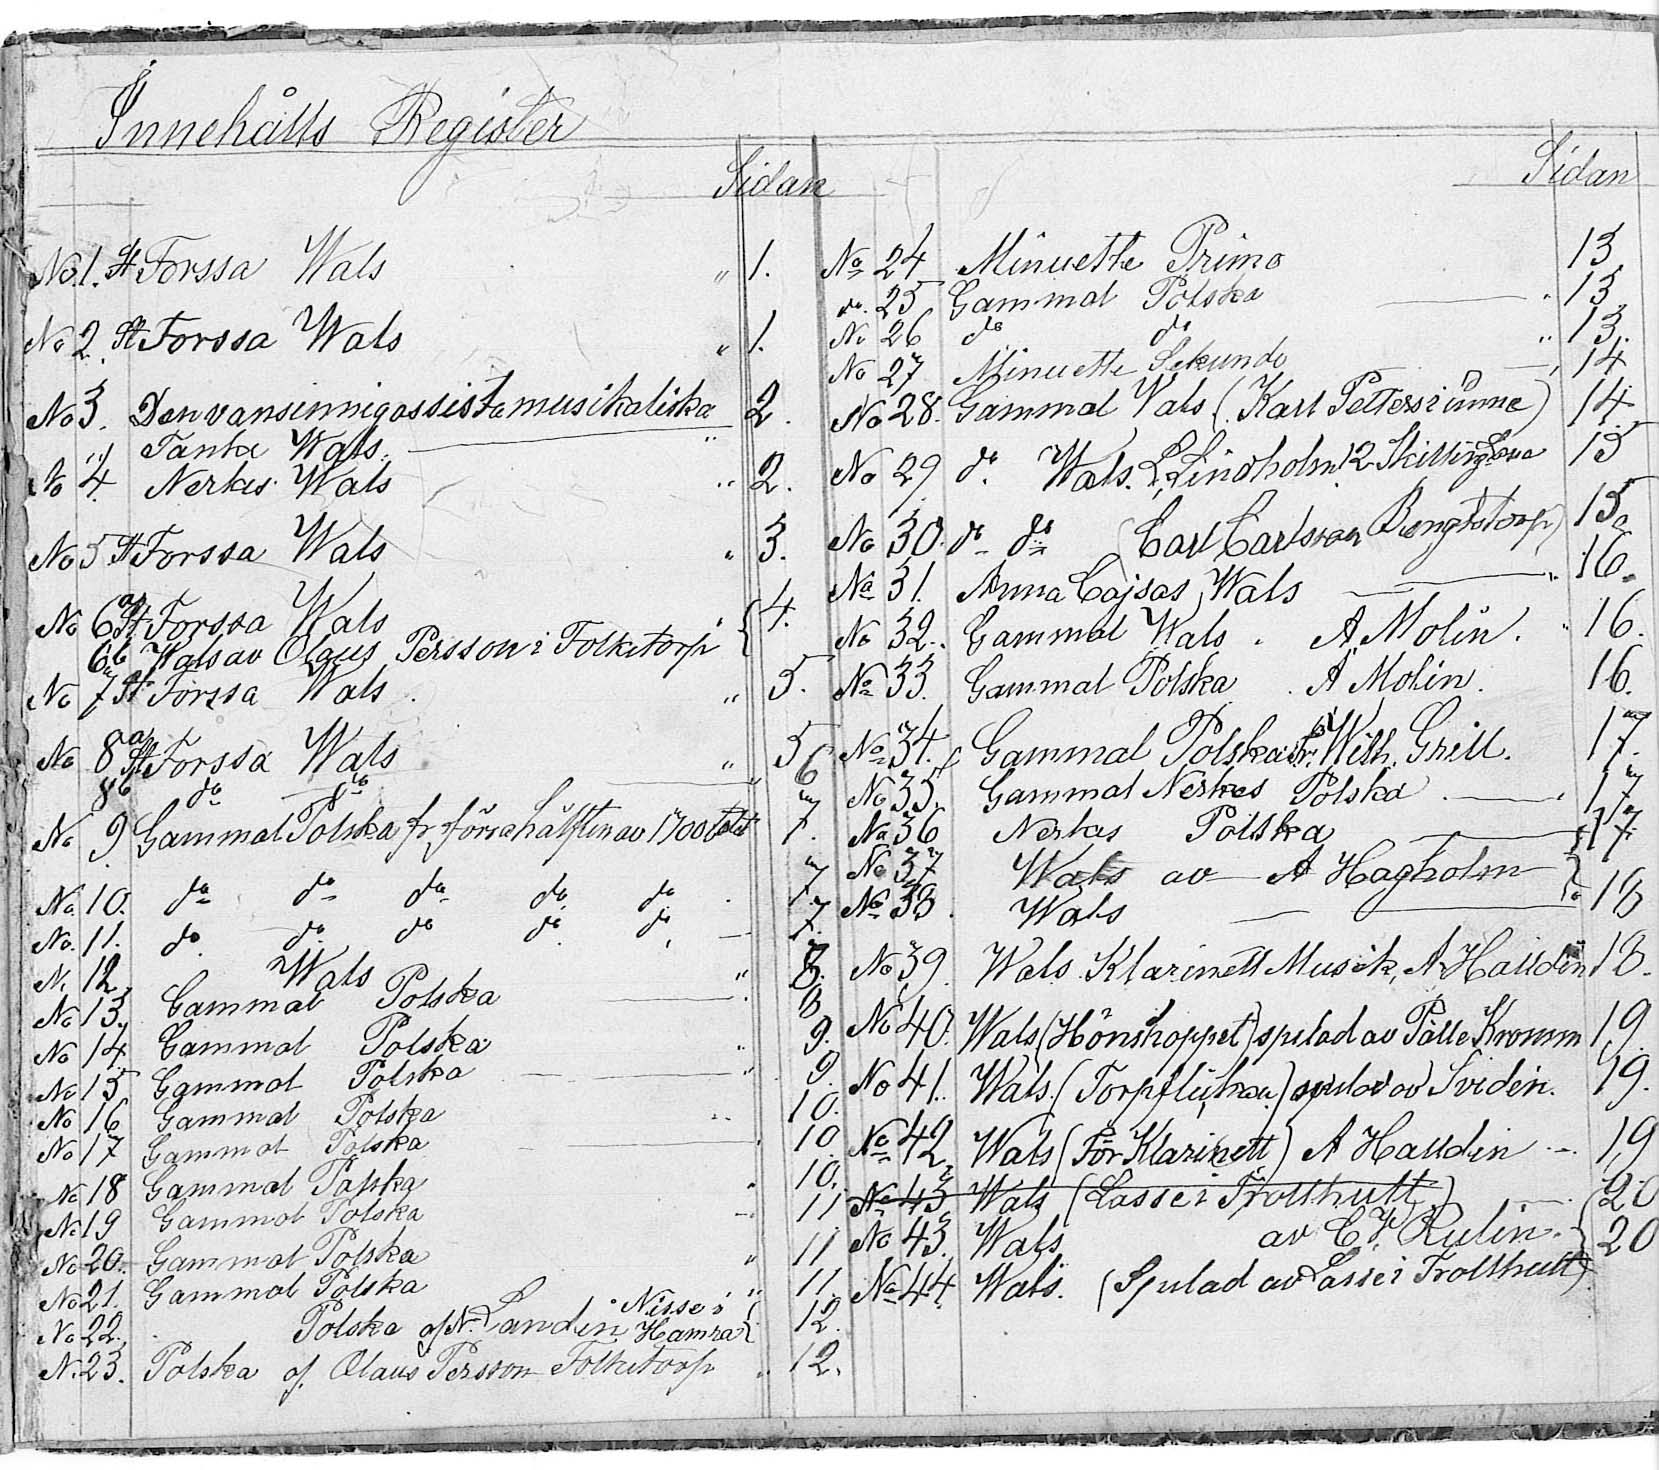 Innehålls Register
Sidan
No 1. St Forssa Wals " 1.
No 2. St Forssa Wals " 1.
No 3. Den vansinnigas sista musikaliska 2.
" Tanke Wals. "
No 4 Nerkes Wals " 2.
No 5 St Forssa Wals " 3.
No 6a St Forssa Wals " 4.
6b Wals av Olaus Persson i Folketorp
No 7 St Forssa Wals. " 5.
No 8a St Forssa Wals " 5
8b do do " 6
No 9. Gammal Polska fr. förra hälften av 1700 talet 7.
No. 10. do do do do do . 7
No. 11. do. do. do do do, 7.
N. 12, Wals " 8.
No 13, Gammal Polska 8
No 14 Gammal Polska " 9.
No 15 Gammal Polska " 9.
No 16 Gammal Polska " 10.
No 17 Gammal Polska 10
No 18 Gammal Polska " 10.
No 19 Gammal Polska 11
No 20. Gammal Polska " 11
No 21. Gammal Polska " 11.
No 22. Polska af N. Landin Nisse i Hamra 12.
N. 23. Polska af. Olaus Persson Folketorp " 12.
Sidan
No 24 Minuette Primo 13
do. 25 Gammal Polska " 13
No 26 do do " 13.
No 27 Minuette Sekundo 14
No 28. Gammal Wals (Karl Petters i Ånne) 14.
No 29 do. Wals. L. Lindholm 12 Skillings 15
No 30. do do (Carl Carlsson Bengtstorp) 15.
No 31. Anna Cajsas Wals " 16.
No 32. Gammal Wals. A Molin. " 16.
No 33. Gammal Polska. A Molin. 16.
No 34. Gammal Polska Wilh. Grill. 17.
No 35. Gammal Nerkes Polska. 17
No 36 Nerkes Polska 17.
No 37 Wals av A Hagholm
No 38. Wals 18
No 39. Wals. Klarinett Musik, A Halldin 18.
No 40. Wals (Hönshoppet) spelad av Pålle Kromm 19.
No 41. Wals. (Torpflickan) spelad av Sviden. 19.
No 42, Wals (För Klarinett) A Halldin 19
No 43, Wals (Lasse i Trolthult) 20
No 43. Wals av C. F. Rulin. 20
No 44. Wals. (Spelad av Lasse i Trolthult)